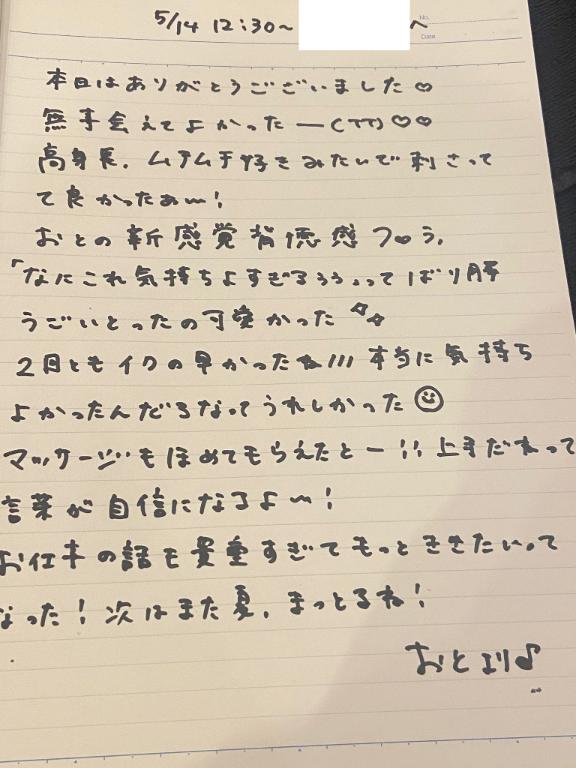 5/14 12:30~ へ
No.
Date
本日はありがとうございました♡
無事会えてよかったー(TT)♡♡
高身長、ムチムチ好きみたいで刺さって
て良かったぁ〜!
おとの新感覚背徳感フ○ラ、
「なにこれ気持ちよすぎるぅぅ、、ってばり腰
うごいとったの可愛かった
2回ともイクの早かったね/// 本当に気持ち
よかったんだろなってうれしかった☺
マッサージもほめてもらえたとー!! 上手だねって
言葉が自信になるよ〜!
お仕事の話も貴重すぎてもっとききたいって
なった! 次はまた夏、まっとるね!
おとより♪